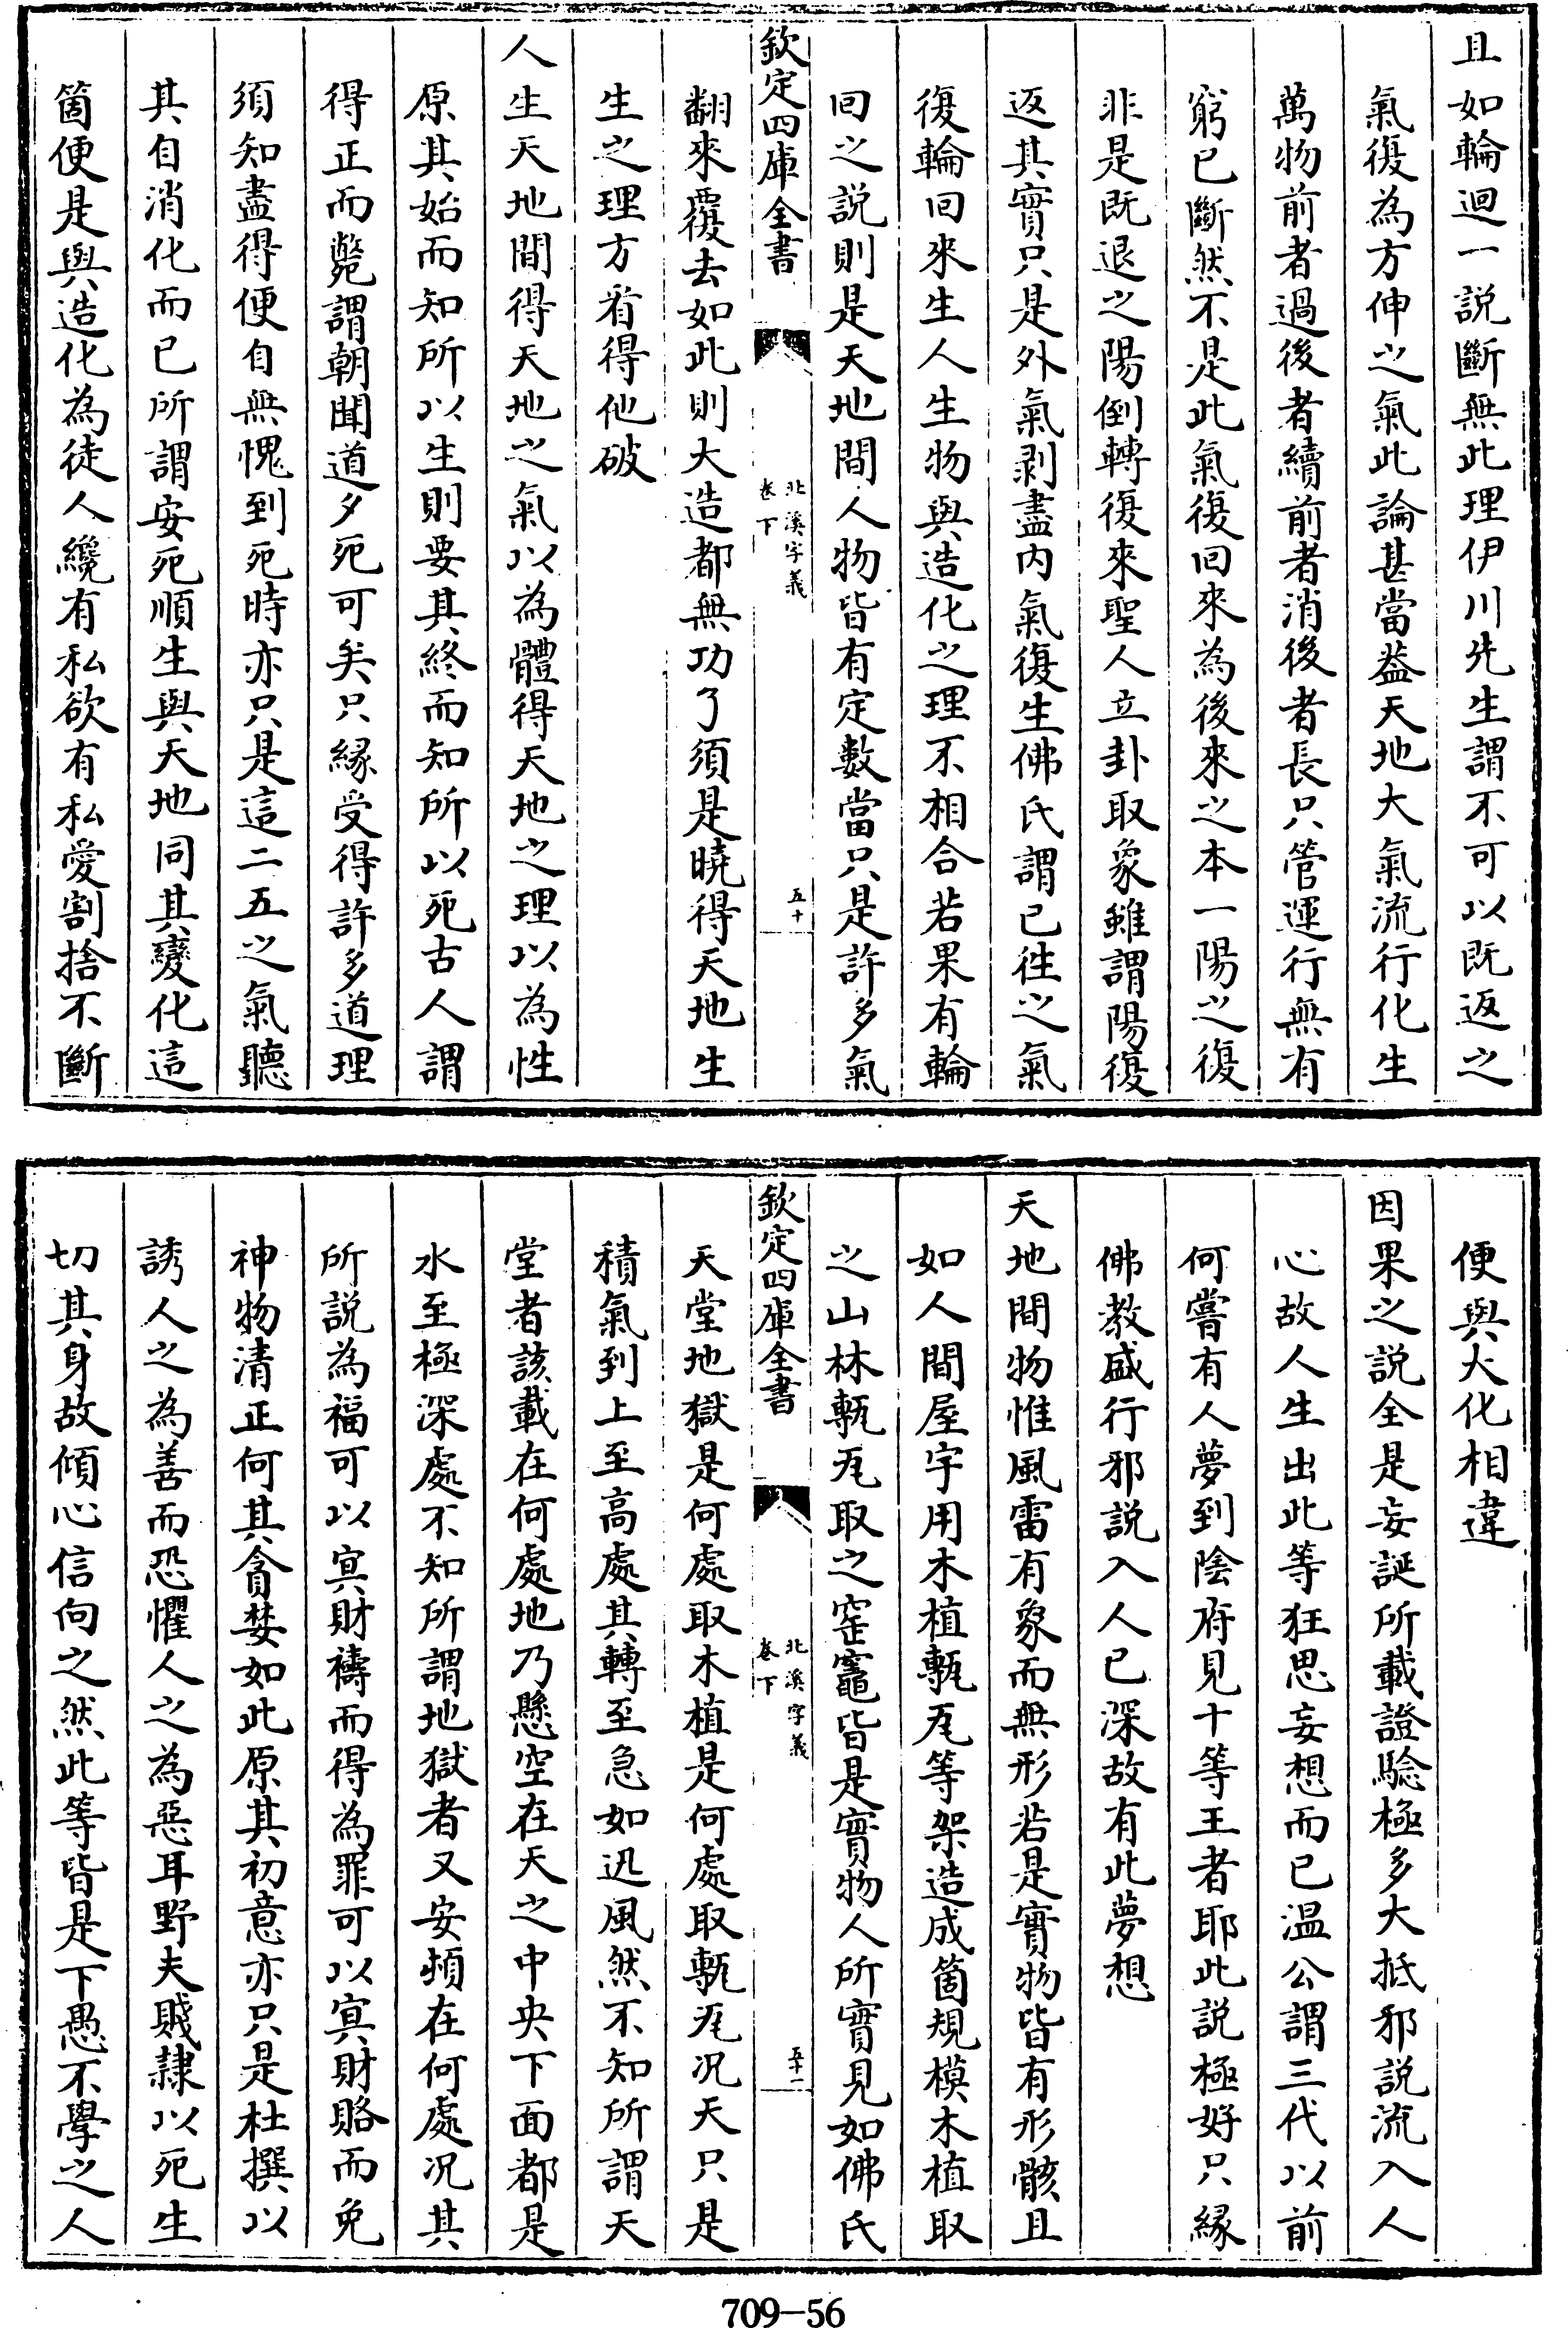 且如輪迴一説斷無此理伊川先生謂不可以既返之
氣復為方伸之氣此論甚當葢天地大氣流行化生
萬物前者過後者續前者消後者長只管運行無有
窮已斷然不是此氣復回來為後來之本一陽之復
非是既退之陽倒轉復來聖人立卦取象雖謂陽復
返其實只是外氣剥盡内氣復生佛氏謂已徃之氣
復輪回來生人生物與造化之理不相合若果有輪
回之説則是天地間人物皆有定數當只是許多氣
欽定四庫全書
北溪字義
卷下
五十
翻來覆去如此則大造都無功了須是曉得天地生
生之理方看得他破
人生天地間得天地之氣以為體得天地之理以為性
原其始而知所以生則要其終而知所以死古人謂
得正而斃謂朝聞道夕死可矣只縁受得許多道理
須知盡得便自無愧到死時亦只是這二五之氣聽
其自消化而已所謂安死順生與天地同其變化這
箇便是與造化為徒人纔有私欲有私愛割捨不斷
便與大化相違
因果之説全是妄誕所載證驗極多大抵邪説流入人
心故人生出此等狂思妄想而已温公謂三代以前
何嘗有人夢到陰府見十等王者耶此説極好只縁
佛教盛行邪説入人已深故有此夢想
天地間物惟風雷有象而無形若是實物皆有形骸且
如人間屋宇用木植甎瓦等架造成箇規模木植取
之山林甎瓦取之窑竈皆是實物人所實見如佛氏
欽定四庫全書
北溪字義
卷下
五十一
天堂地獄是何處取木植是何處取甎瓦况天只是
積氣到上至高處其轉至急如迅風然不知所謂天
堂者該載在何處地乃懸空在天之中央下面都是
水至極深處不知所謂地獄者又安頓在何處况其
所説為福可以㝠財禱而得為罪可以㝠財賂而免
神物清正何其貪婪如此原其初意亦只是杜撰以
誘人之為善而恐懼人之為惡耳野夫賤隸以死生
切其身故傾心信向之然此等皆是下愚不學之人
709-56